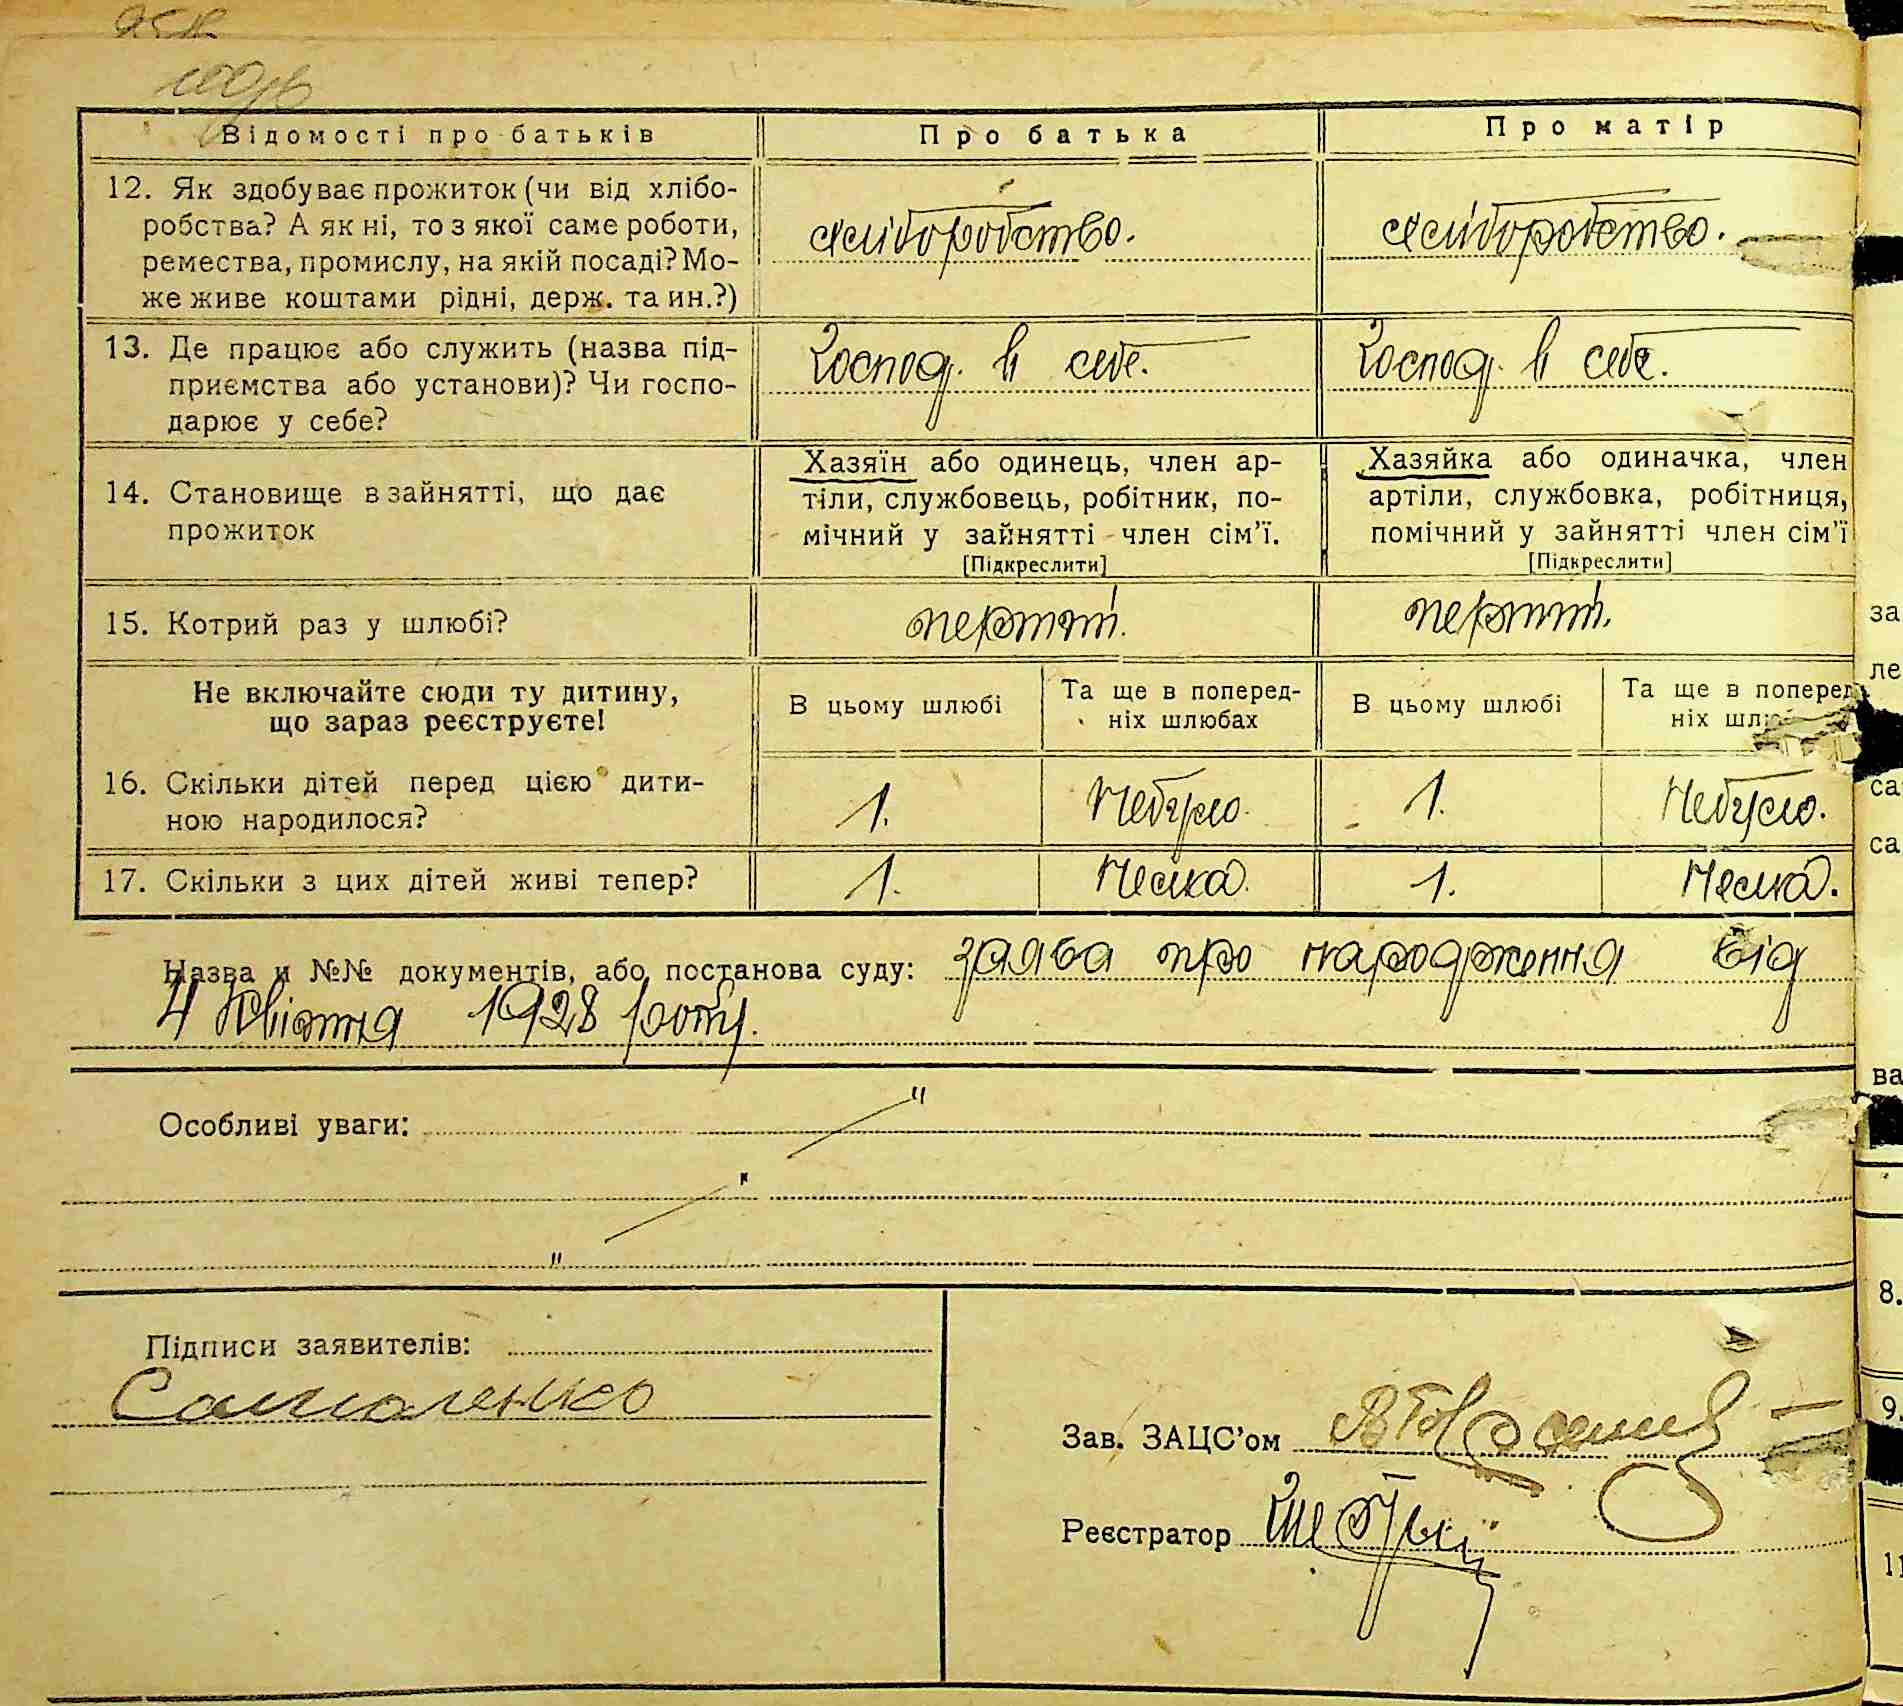 Відомості про батьків Про батька Про матір
12. Як здобуває прожиток (чи від хлібо-
робства? А як ні, то з якої саме роботи,
ремества, промислу, на якій посаді? Мо-
же живе коштами рідні, держ. та ин.?)
хліборобство. хліборобство.
13. Де працює або служить (назва під-
приємства або установи)? Чи госпо-
дарює у себе?
Господ. в себе. Господ. в себе.
14. Становище в зайнятті, що дає
прожиток
Хазяїн або одинець, член ар-
тіли, службовець, робітник, по-
мічний у зайнятті член сім'ї.
[Підкреслити]
Хазяйка або одиначка, член
артіли, службовка, робітниця,
помічний у зайнятті член сім'ї
[Підкреслити]
15. Котрий раз у шлюбі? перший. перший.
Не включайте сюди ту дитину,
що зараз реєструєте!
В цьому шлюбі
Та ще в поперед-
ніх шлюбах
В цьому шлюбі
Та ще в поперед
ніх
16. Скільки дітей перед цією дити-
ною народилося?
1. Небуло. 1. Небуло.
17. Скільки з цих дітей живі тепер? 1. Нема. 1. Нема.
Назва и №№ документів, або постанова суду: заява про народження від
4 Квітня 1928 року.
Особливі уваги:
Підписи заявителів:
Самоленко
Зав. ЗАЦС'ом
Реєстратор
за
ле
са
са
ва
8.
9.
11